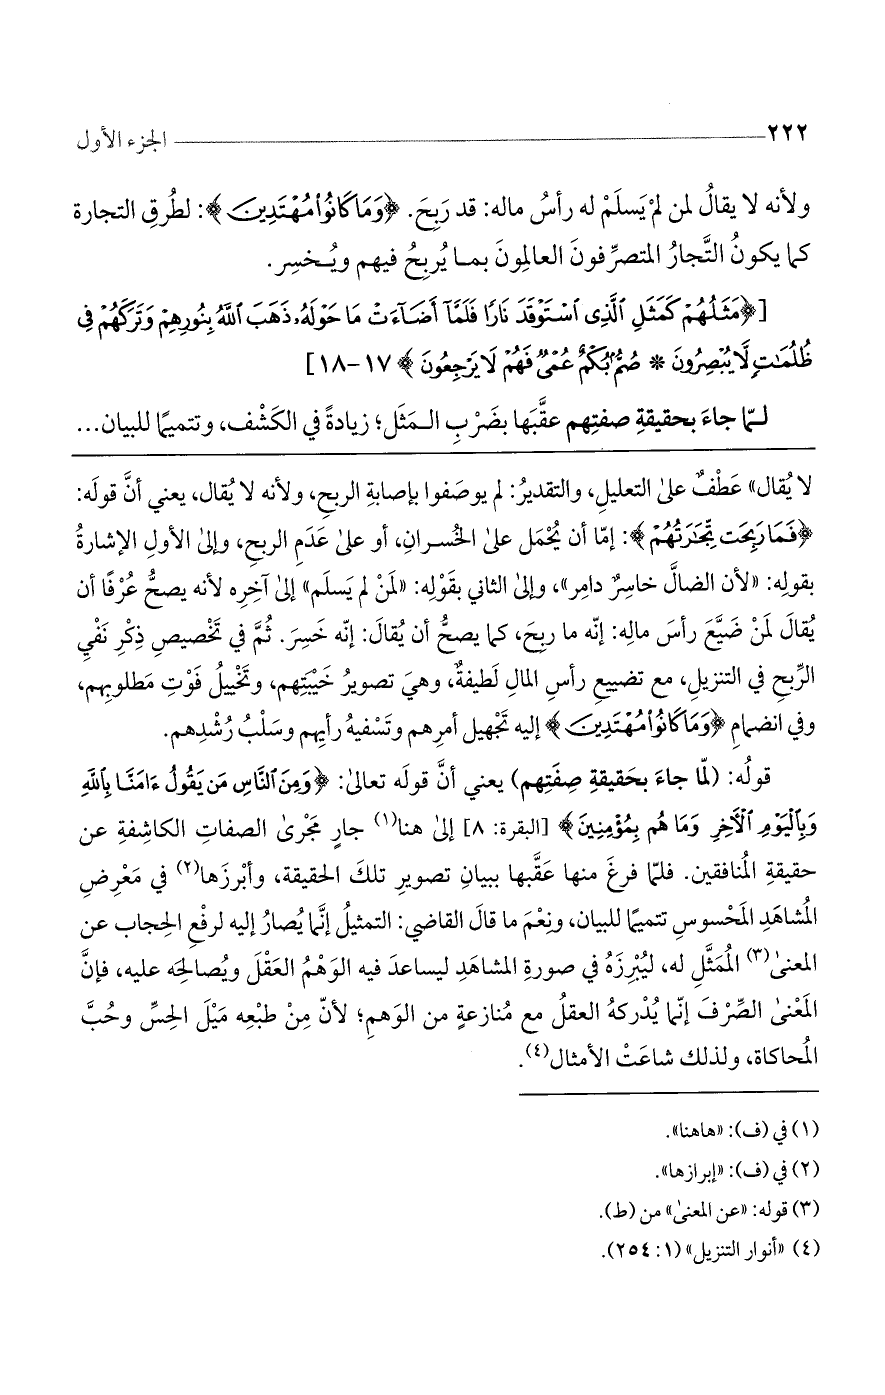 ٢٢٢ الجزء الأول
ولأنه لا يقالُ لمن لمْ يَسلَمْ له رأسُ ماله: قد رَبِحَ. ﴿وَمَا كَانُوا۟ مُهْتَدِينَ﴾: لطُرقِ التجارة
كما يكونُ التُّجارُ المتصرِّفونَ العالِمونَ بمـا يُربِحُ فيهم ويُـخسِر.
[﴿مَثَلُهُمْ كَمَثَلِ ٱلَّذِى ٱسْتَوْقَدَ نَارًا فَلَمَّآ أَضَآءَتْ مَا حَوْلَهُۥ ذَهَبَ ٱللَّهُ بِنُورِهِمْ وَتَرَكَهُمْ فِى
ظُلُمَـٰتٍ لَّا يُبْصِرُونَ * صُمٌّۢ بُكْمٌ عُمْىٌ فَهُمْ لَا يَرْجِعُونَ﴾ ١٧-١٨]
لـمّا جاءَ بحقيقةِ صفتِهم عقَّبَها بضَرْبِ الـمَثَل؛ زيادةً في الكَشْف، وتتميمًا للبيان...
لا يُقال» عَطْفٌ علىٰ التعليلِ، والتقديرُ: لم يوصَفوا بإصابةِ الربحِ، ولأنه لا يُقال، يعني أنَّ قولَه:
﴿فَمَا رَبِحَت تِّجَـٰرَتُهُمْ﴾: إمّا أن يُحْمَل علىٰ الخُسـرانِ، أو علىٰ عَدَمِ الربحِ، وإلىٰ الأولِ الإشارةُ
بقولِه: «لأن الضالَّ خاسِرٌ دامِر»، وإلىٰ الثاني بقَوْلِه: «لمَنْ لم يَسلَم» إلىٰ آخِرِه لأنه يصحُّ عُرْفًا أن
يُقالَ لمَنْ ضَيَّعَ رأسَ مالِه: إنّه ما ربِحَ، كما يصحُّ أن يُقالَ: إنّه خَسِرَ. ثُمَّ في تَخْصيصِ ذِكْرِ نَفْيِ
الرِّبحِ في التنزيلِ، مع تضييعِ رأسِ المالِ لَطيفةٌ، وهيَ تصويرُ خَيْبَتِهم، وتَخْييلُ فَوْتِ مَطلوبِهم،
وفي انضمامِ ﴿وَمَا كَانُوا۟ مُهْتَدِينَ﴾ إليه تَجْهيل أمرِهم وتَسْفيهُ رأيِهم وسَلْبُ رُشْدِهم.
قولُه: (لمّا جاءَ بحَقيقةِ صِفَتِهم) يعني أنَّ قولَه تعالىٰ: ﴿وَمِنَ ٱلنَّاسِ مَن يَقُولُ ءَامَنَّا بِٱللَّهِ
وَبِٱلْيَوْمِ ٱلْآخِرِ وَمَا هُم بِمُؤْمِنِينَ﴾ [البقرة: ٨] إلىٰ هنا(١) جارٍ مَجْرىٰ الصفاتِ الكاشفةِ عن
حقيقةِ المُنافقين. فلمّا فرغَ منها عَقَّبها ببيانِ تصويرِ تلكَ الحقيقة، وأبْرزَها(٢) في مَعْرِضِ
المُشاهَدِ المَحْسوسِ تتميمًا للبيان، ونِعْمَ ما قالَ القاضي: التمثيلُ إنَّما يُصارُ إليه لرفْعِ الحِجاب عن
المعنىٰ(٣) المُمَثَّلِ له، ليُبْرِزَهُ في صورةِ المشاهَدِ ليساعدَ فيه الوَهْمُ العَقْلَ ويُصالِحَه عليه، فإنَّ
المَعْنىٰ الصِّرْفَ إنّما يُدْركهُ العقلُ مع مُنازعةٍ من الوَهمِ؛ لأنّ مِنْ طبْعِه مَيْلَ الحِسِّ وحُبَّ
المُحاكاة، ولذلك شاعَتْ الأمثال(٤).
(١) في (ف): «هاهنا».
(٢) في (ف): «إبرازها».
(٣) قوله: «عن المعنىٰ» من (ط).
(٤) «أنوار التنزيل» (١: ٢٥٤).